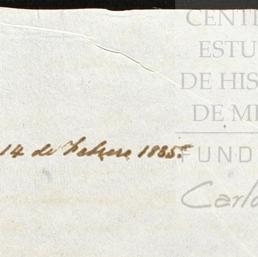 CENT
ESTU
DE HIS
DE M
FUND
Carlo
14 de Febrero 1885.